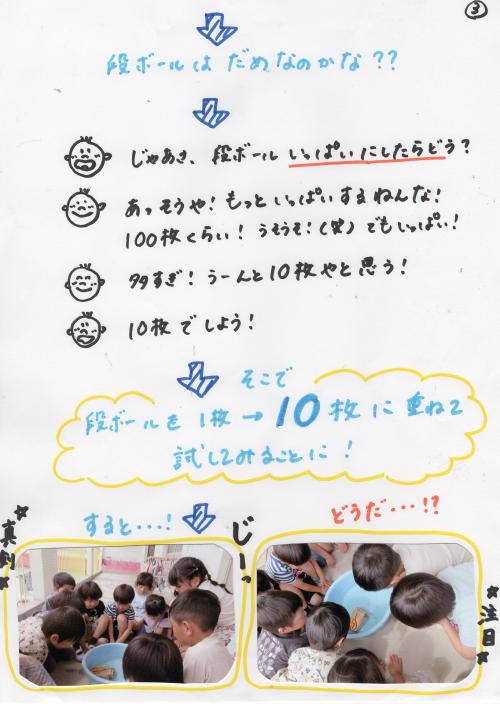 ③
段ボールは だめなのかな??
じゃあさ、段ボール いっぱいにしたらどう?
あっそうや!もっといっぱいするねんな!
100枚くらい!うそうそ!(笑)でもいっぱい!
多すぎ!うーんと10枚やと思う!
10枚でしよう!
そこで
段ボールを1枚→10枚に重ねて
試してみることに!
すると・・・!
じーっ
どうだ・・・!?
真剣
注目